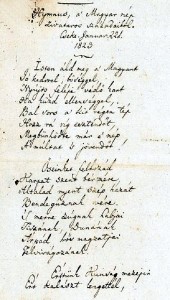 Hymnus, a' Magyar nép
zivataros századaiból.
Cseke, Januar 22d.
1823
Isten áldd meg a' Magyart
Jó kedvvel, bőséggel,
Nyújts feléje védő kart
Ha küzd ellenséggel;
Bal sors a' kit régen tép
Hozz rá víg esztendőt
Megbünhödte már e' nép
A' múltat 's jövendőt!
Őseinket felhozád
Kárpát szent bérczére,
Általad nyert szép hazát
Bendegúznak vére.
'S merre zúgnak habjai
Tiszának, Dunának
Árpád hős magzatjai
Felvirágozának.
Értünk Kunság mezején
Ért kalászt lengettél,